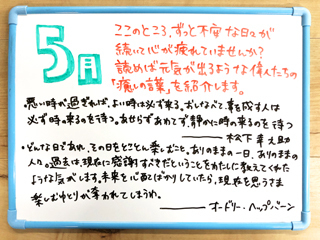 5月
ここのところ、ずっと不安な日々が
続いて心が疲れていませんか?
読めば元気が出るような偉人たちの
「癒しの言葉」を紹介します。
・悪い時が過ぎれば、よい時は必ず来る。おしなべて、事を成す人は
必ず時の来るのを待つ。あせらずあわてず、静かに時の来るのを待つ
松下幸之助
・どんな日であれ、その日をとことん楽しむこと。ありのままの一日。ありのままの
人々。過去は、現在に感謝すべきだということをわたしに教えてくれた
ような気がします。未来を心配してばかりしていたら、現在を思うさま
楽しむゆとりが奪われてしまうわ。
オードリー・ヘップバーン